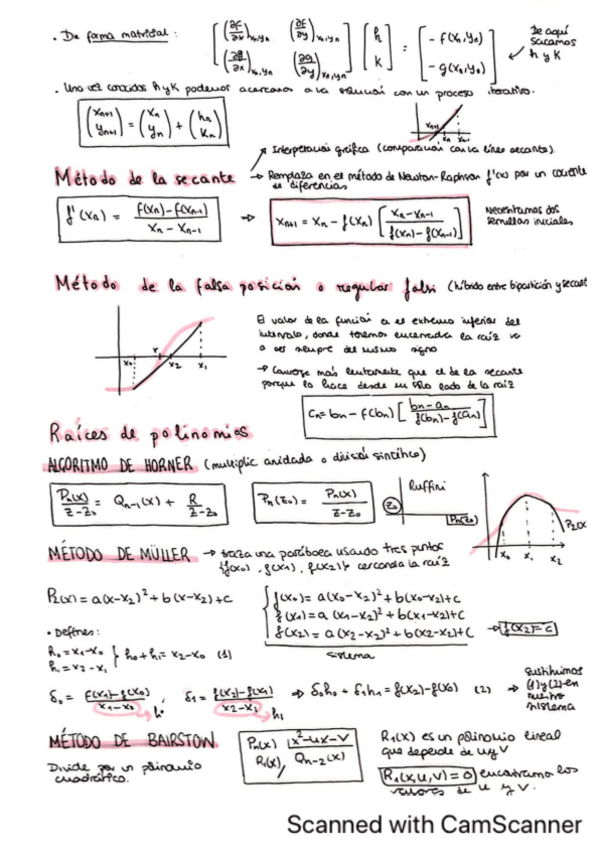 • De forma matricial: [ (∂f/∂x)xn,yn (∂f/∂y)xn,yn ; (∂g/∂x)xn,yn (∂g/∂y)xn,yn ] [ h ; k ] = [ -f(xn,yn) ; -g(xn,yn) ] De aquí sacamos h y k
• Una vez conocidos h y k podemos acercarnos a la solución con un proceso iterativo.
(xn+1 ; yn+1) = (xn ; yn) + (hn ; kn)
xn+1 xn xn-1
Interpretación gráfica (comparación con la línea secante).
Método de la secante → Remplaza en el método de Newton-Raphson f'(x) por un cociente de diferencias
f'(xn) = f(xn)-f(xn-1) / xn - xn-1 ⇒ xn+1 = xn - f(xn) [ xn - xn-1 / f(xn)-f(xn-1) ] Necesitamos dos semillas iniciales
Método de la falsa posición o regular falsi (híbrido entre bipartición y secant
x0 r x2 x1
El valor de la función en el extremo inferior del
intervalo, donde tenemos encerrada la raíz va
a ser siempre del mismo signo
→ Converge más lentamente que el de la secante
porque lo hace desde un sólo lado de la raíz
Cn = bn - f(bn) [ bn - an / f(bn)-f(an) ]
Raíces de polinomios
ALGORITMO DE HORNER (multiplic anidada o división sintética)
Pn(x) / z-z0 = Qn-1(x) + R / z-z0
Pn(z0) = Pn(x) / z-z0
Ruffini
z0
Pn(z0)
P2(x
x0 x1 x2
MÉTODO DE MÜLLER → traza una parábola usando tres puntos
{f(x0), f(x1), f(x2)} cercanos a la raíz
P2(x) = a(x-x2)² + b(x-x2)+c
f(x0) = a(x0-x2)² + b(x0-x2)+c
f(x1) = a(x1-x2)² + b(x1-x2)+c
f(x2) = a(x2-x2)² + b(x2-x2)+c → f(x2)=c
sistema
• Defines:
h0 = x1-x0
h1 = x2-x1
} h0+h1 = x2-x0 (1)
δ0 = f(x1)-f(x0) / x1-x0 h0 ; δ1 = f(x2)-f(x1) / x2-x1 h1 ⇒ δ0h0 + δ1h1 = f(x2)-f(x0) (2) ⇒ sustituimos (1) y (2) en nuestro sistema
MÉTODO DE BAIRSTOW
Divide por un polinomio
cuadrático.
Pn(x) | x²-ux-v
R1(x) Qn-2(x)
R1(x) es un polinomio lineal
que depende de u y v
R1(x,u,v)=0 encontramos los
valores de u y v.
Scanned with CamScanner